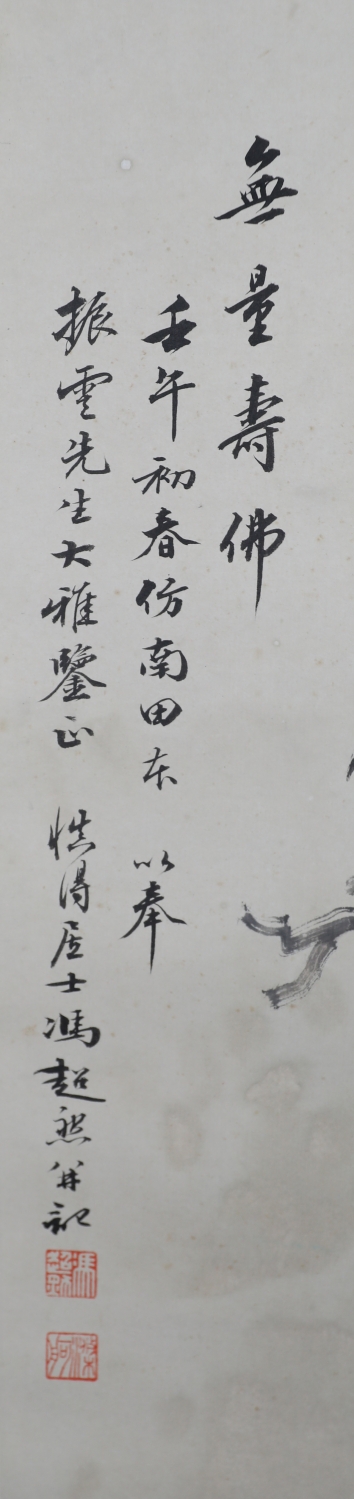 無量壽佛
壬午初春仿南田本 以奉
振雲先生大雅鑒正 慎得居士馮超然并記